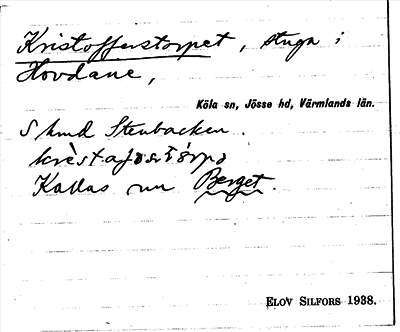 Kristofferstorpet, stuga i
Hovdane,
Köla sn, Jösse hd, Värmlands län.
S hmd Stenbacken.
Kallas nu Berget.
ELOV SILFORS 1938.